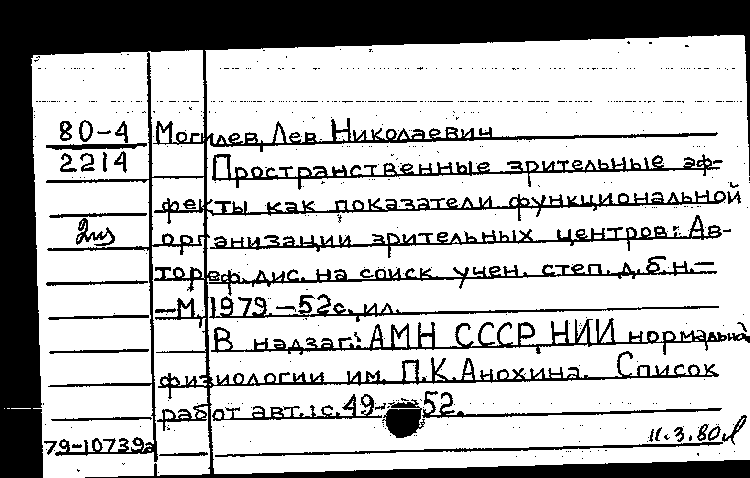 80-4 Могилев, Лев Николаевич
2214 Пространственные зрительные эф-
фекты как показатели функциональной
2из организации зрительных центров: Ав-
тореф. дис. на соиск. учен. степ. д.б.н.—
—М., 1979.—52с., ил.
В надзаг.: АМН СССР, НИИ нормальной
физиологии им. П.К.Анохина. Список
работ авт.: с. 49-52.
79-10739а 11.3.80